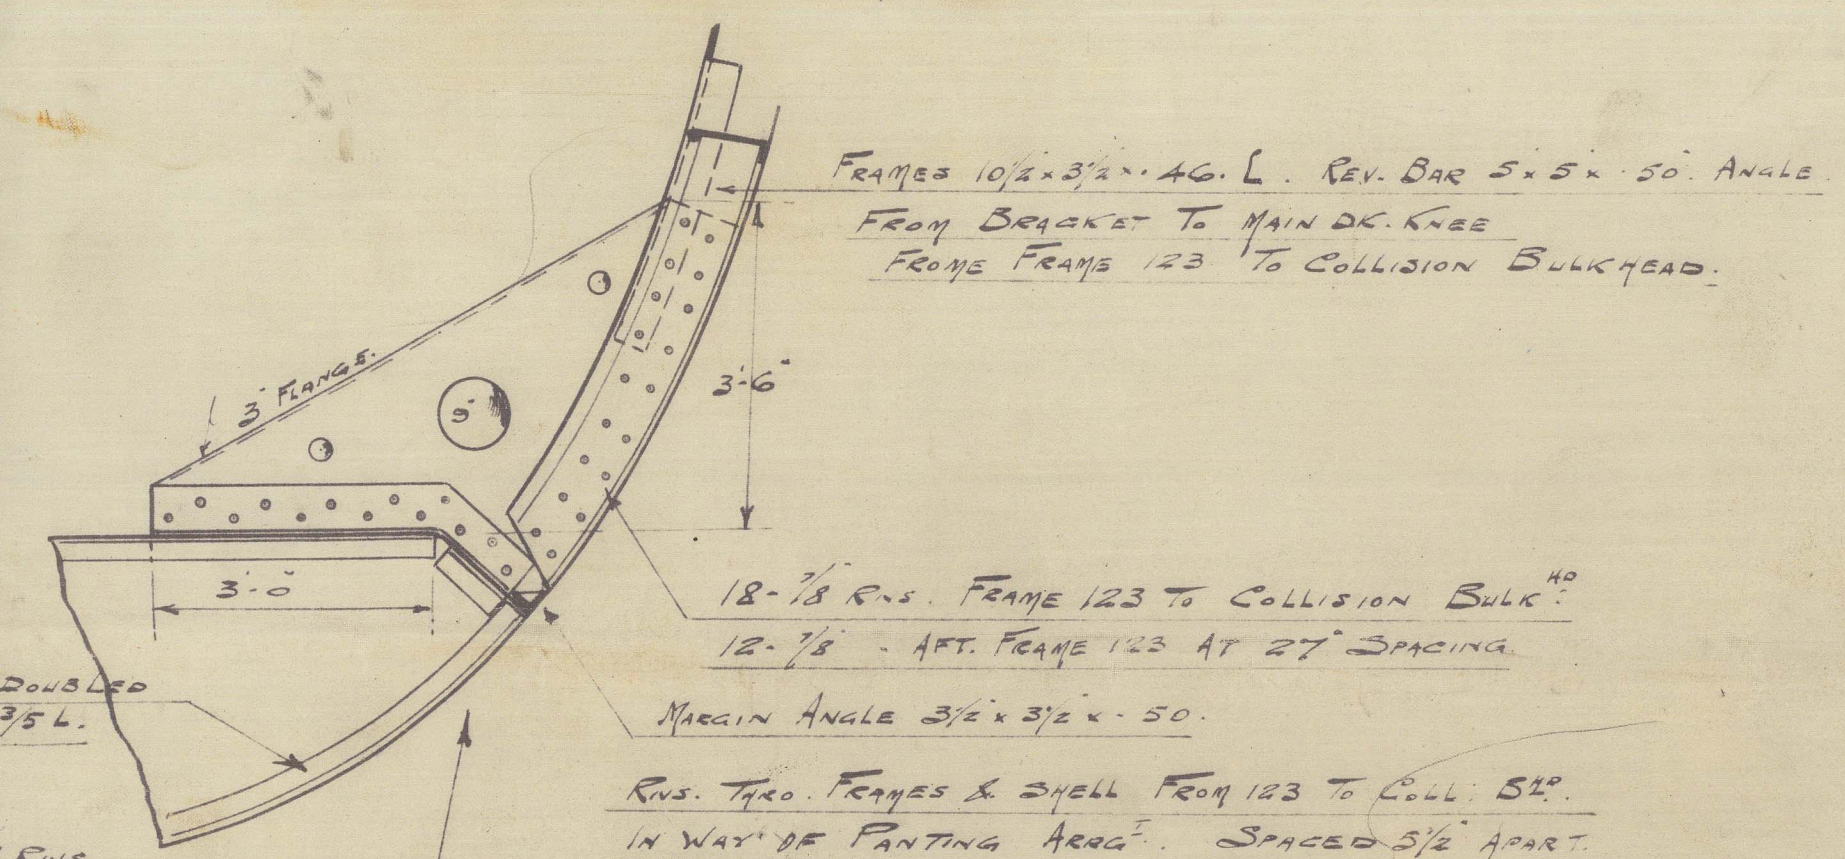 FRAMES 10½" x 3½" x .46. [. REV. BAR 5" x 5" x .50". ANGLE
FROM BRACKET TO MAIN DK. KNEE
FROME FRAME 123 TO COLLISION BULKHEAD.
3" FLANGE.
9"
3'-6"
3'-0"
18-7/8" RVS. FRAME 123 TO COLLISION BULKHD.
12-7/8" " AFT. FRAME 123 AT 27" SPACING
DOUBLED
3/5 L.
MARGIN ANGLE 3½" x 3½" x .50.
RVS. THRO. FRAMES & SHELL FROM 123 TO COLL. BHD.
IN WAY OF PANTING ARRGT. SPACED 5½" APART.
RVS